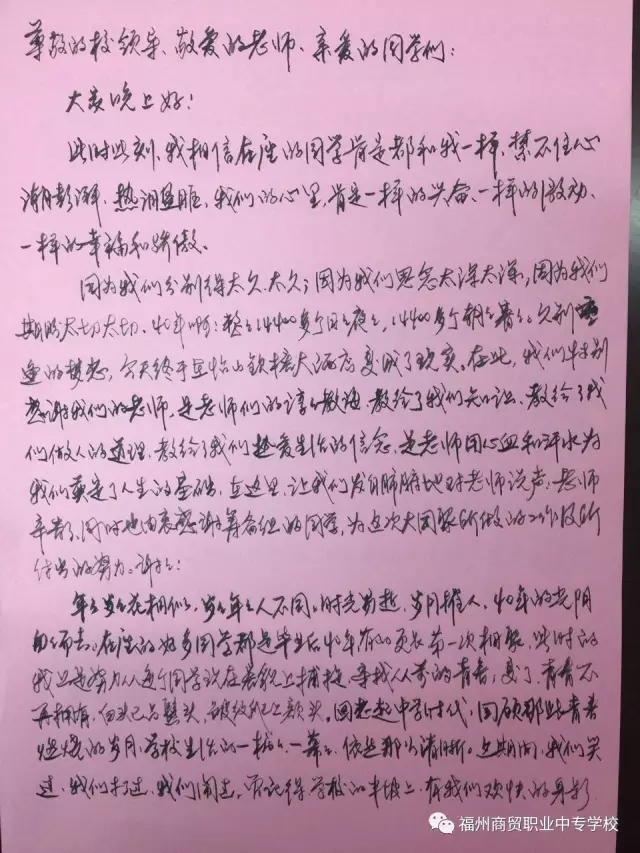 尊敬的校领导、敬爱的老师、亲爱的同学们:
大家晚上好!
此时此刻,我相信在座的同学肯定都和我一样,禁不住心
潮澎湃,热泪盈眶,我们的心里,肯定一样的兴奋、一样的激动、
一样的幸福和骄傲、
因为我们分别得太久太久;因为我们思念太深太深,因为我们
期盼太切太切、40年啊:整整14400多个日日夜夜,14400多个朝朝暮暮。久别重
逢的梦想,今天终于在怡山铁楼大酒店变成了现实。在此,我们特别
感谢我们的老师,是老师们的谆谆教诲教给了我们知识、教给了我
们做人的道理、教给了我们热爱生活的信念,是老师用心血和汗水为
我们奠定了人生的基础,在这里,让我们发自肺腑地对老师说声:老师
辛苦了,同时也由衷感谢筹备组的同学,为这次大团聚所做的工作及所
付出的努力。谢谢:
年年岁岁花相似,岁岁年年人不同。时光易逝、岁月催人、40年的光阴
匆匆而去。在座的好多同学都是毕业后40年来的第一次相聚,此时的
我正是努力从每个同学现在容貌上捕捉、寻找从前的青春,是了,青春不
再拥有,白头已是鬓头,皱纹爬上额头。回想起中学时代,回顾那些青春
燃烧的岁月,学校生活的一桩桩、一幕幕,依然那么清晰。这期间,我们笑
过,我们打过,我们闹过,曾记得学校的半坡上,有我们欢快的身影
福州商贸职业中专学校